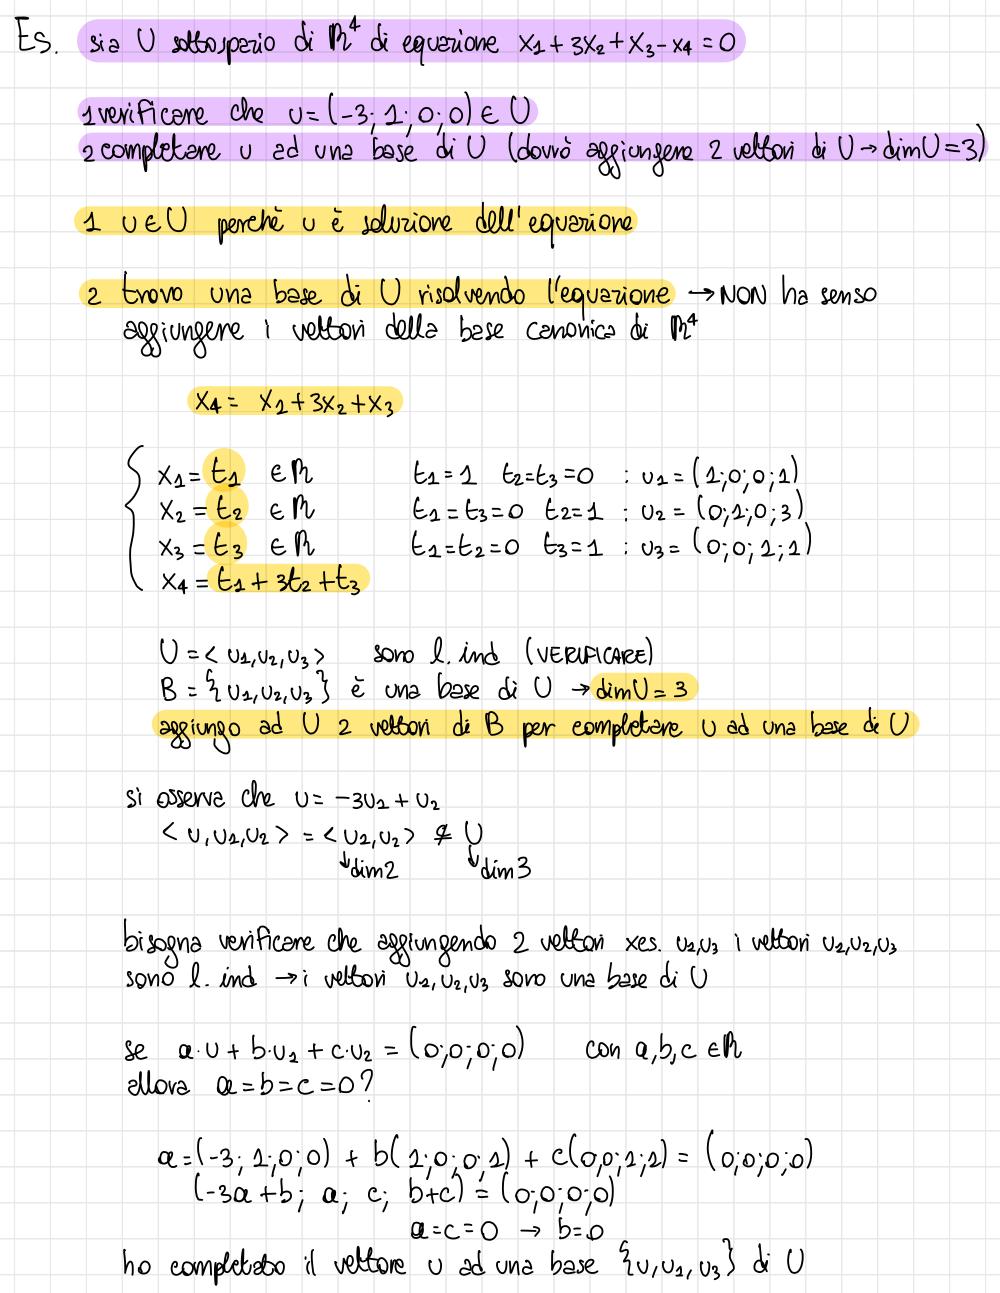 Es. sia U sottospazio di ℝ⁴ di equazione x₁+3x₂+x₃-x₄=0
1 verificare che u=(-3; 1; 0; 0) ∈ U
2 completare u ad una base di U (dovrò aggiungere 2 vettori di U → dimU=3)
1 u∈U perchè u è soluzione dell'equazione
2 trovo una base di U risolvendo l'equazione → NON ha senso
aggiungere i vettori della base canonica di ℝ⁴
x₄ = x₁+3x₂+x₃
x₁=t₁ ∈ℝ t₁=1 t₂=t₃=0 : u₁=(1;0;0;1)
x₂=t₂ ∈ℝ t₁=t₃=0 t₂=1 : u₂=(0;1;0;3)
x₃=t₃ ∈ℝ t₁=t₂=0 t₃=1 : u₃=(0;0;1;1)
x₄=t₁+3t₂+t₃
U=< u₁,u₂,u₃> sono l. ind (VERIFICARE)
B={u₁,u₂,u₃} è una base di U → dimU=3
aggiungo ad U 2 vettori di B per completare u ad una base di U
si osserva che u= -3u₁+u₂
< u,u₁,u₂ > = < u₁,u₂> ⊊ U
↓dim2 ↓dim3
bisogna verificare che aggiungendo 2 vettori xes. u₂,u₃ i vettori u₁,u₂,u₃
sono l. ind → i vettori u₁,u₂,u₃ sono una base di U
se a·u+b·u₁+c·u₂=(0;0;0;0) con a,b,c ∈ℝ
allora a=b=c=0?
a=(-3; 1;0;0) + b(1;0;0;1) + c(0;0;1;1) = (0;0;0;0)
(-3a+b; a; c; b+c) = (0;0;0;0)
a=c=0 → b=0
ho completato il vettore u ad una base {u,u₁,u₃} di U